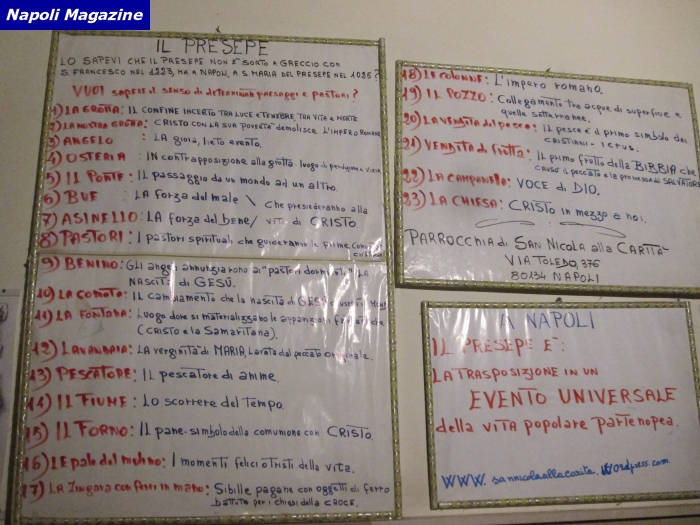 Napoli Magazine
IL PRESEPE
LO SAPEVI CHE IL PRESEPE NON È SORTO A GRECCIO CON
S. FRANCESCO NEL 1223, MA A NAPOLI, A S. MARIA DEL PRESEPE NEL 1025?
VUOI sapere il senso di determinati paesaggi e pastori?
1) LA GROTTA: IL CONFINE INCERTO TRA LUCE E TENEBRE, TRA VITA E MORTE
2) LA NOSTRA GROTTA: CRISTO CON LA SUA POVERTÀ DEMOLISCE L'IMPERO ROMANO
3) ANGELO : LA gioia, lieto evento.
4) OSTERIA : IN contrapposizione alla grotta: luogo di perdizione e
5) IL PONTE: IL passaggio da un mondo ad un altro.
6) BUE : LA forza del male \ che presiederanno alla
7) ASINELLO: LA forza del bene / vita di CRISTO
8) PASTORI: I pastori spirituali che guideranno le
9) BENINO: Gli angeli annunziarono ai "pastori dormienti" LA
NASCITA di GESÙ.
10) LA COMETA: IL cambiamento che la nascita di GESÙ
11) LA FONTANA: Luogo dove si materializzano le apparizioni
(CRISTO e la Samaritana).
12) LAVANDAIA: LA verginità di MARIA, Lavata dal peccato originale.
13) PESCATORE: IL pescatore di anime.
14) IL FIUME: Lo scorrere del tempo.
15) IL FORNO: IL pane-simbolo della comunione con CRISTO.
16) LE pale del mulino: I momenti felici o tristi della vita.
17) LA Zingara con ferri in mano: Sibille pagane con oggetti di ferro
battuto per i chiodi della CROCE.
18) LE COLONNE: L'impero romano.
19) IL POZZO: Collegamento tra acque di superficie e
quelle sotterranee.
20) LA VENDITA del pesce: Il pesce è il primo simbolo dei
CRISTIANI -
21) VENDITA di frutta: IL primo frutto della BIBBIA che
causò il peccato e la promessa di SALVATORE
22) LA CAMPANELLA: VOCE di DIO.
23) LA CHIESA: CRISTO in mezzo a noi.
PARROCCHIA di SAN NICOLA alla CARITÀ
VIA TOLEDO, 376
80134 NAPOLI
A NAPOLI
IL PRESEPE È:
LA TRASPOSIZIONE IN UN
EVENTO UNIVERSALE
della VITA popolare partenopea.
WWW. sannicolaallacarita. wordpress.com